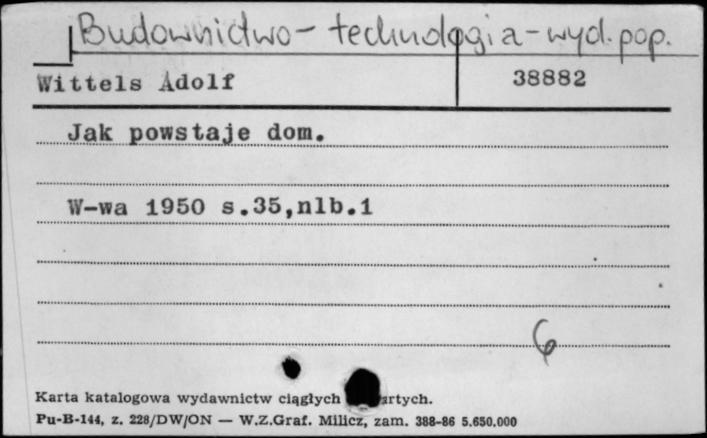 Budownictwo - technologia - wyd. pop.
Wittels Adolf 38882
Jak powstaje dom.
W-wa 1950 s.35,nlb.1
6
Karta katalogowa wydawnictw ciągłych
Pu-B-144, z. 228/DW/ON — W.Z.Graf. Milicz, zam. 388-86 5.650.000